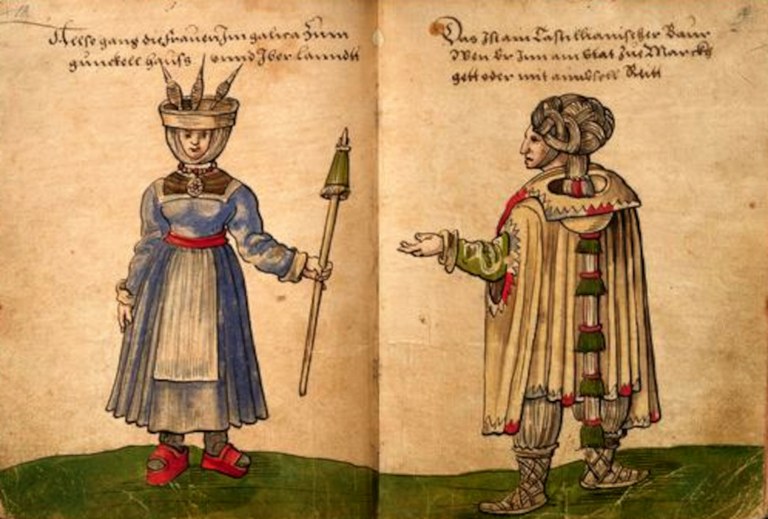 Allso gang die frauen Im galica Zum
gunckell hauss vnnd Iber lanndtt
Das Ist ain Castillianischer Baur
Wen Er Inn ain Stat Zue Marckh
gett oder mit Ritt